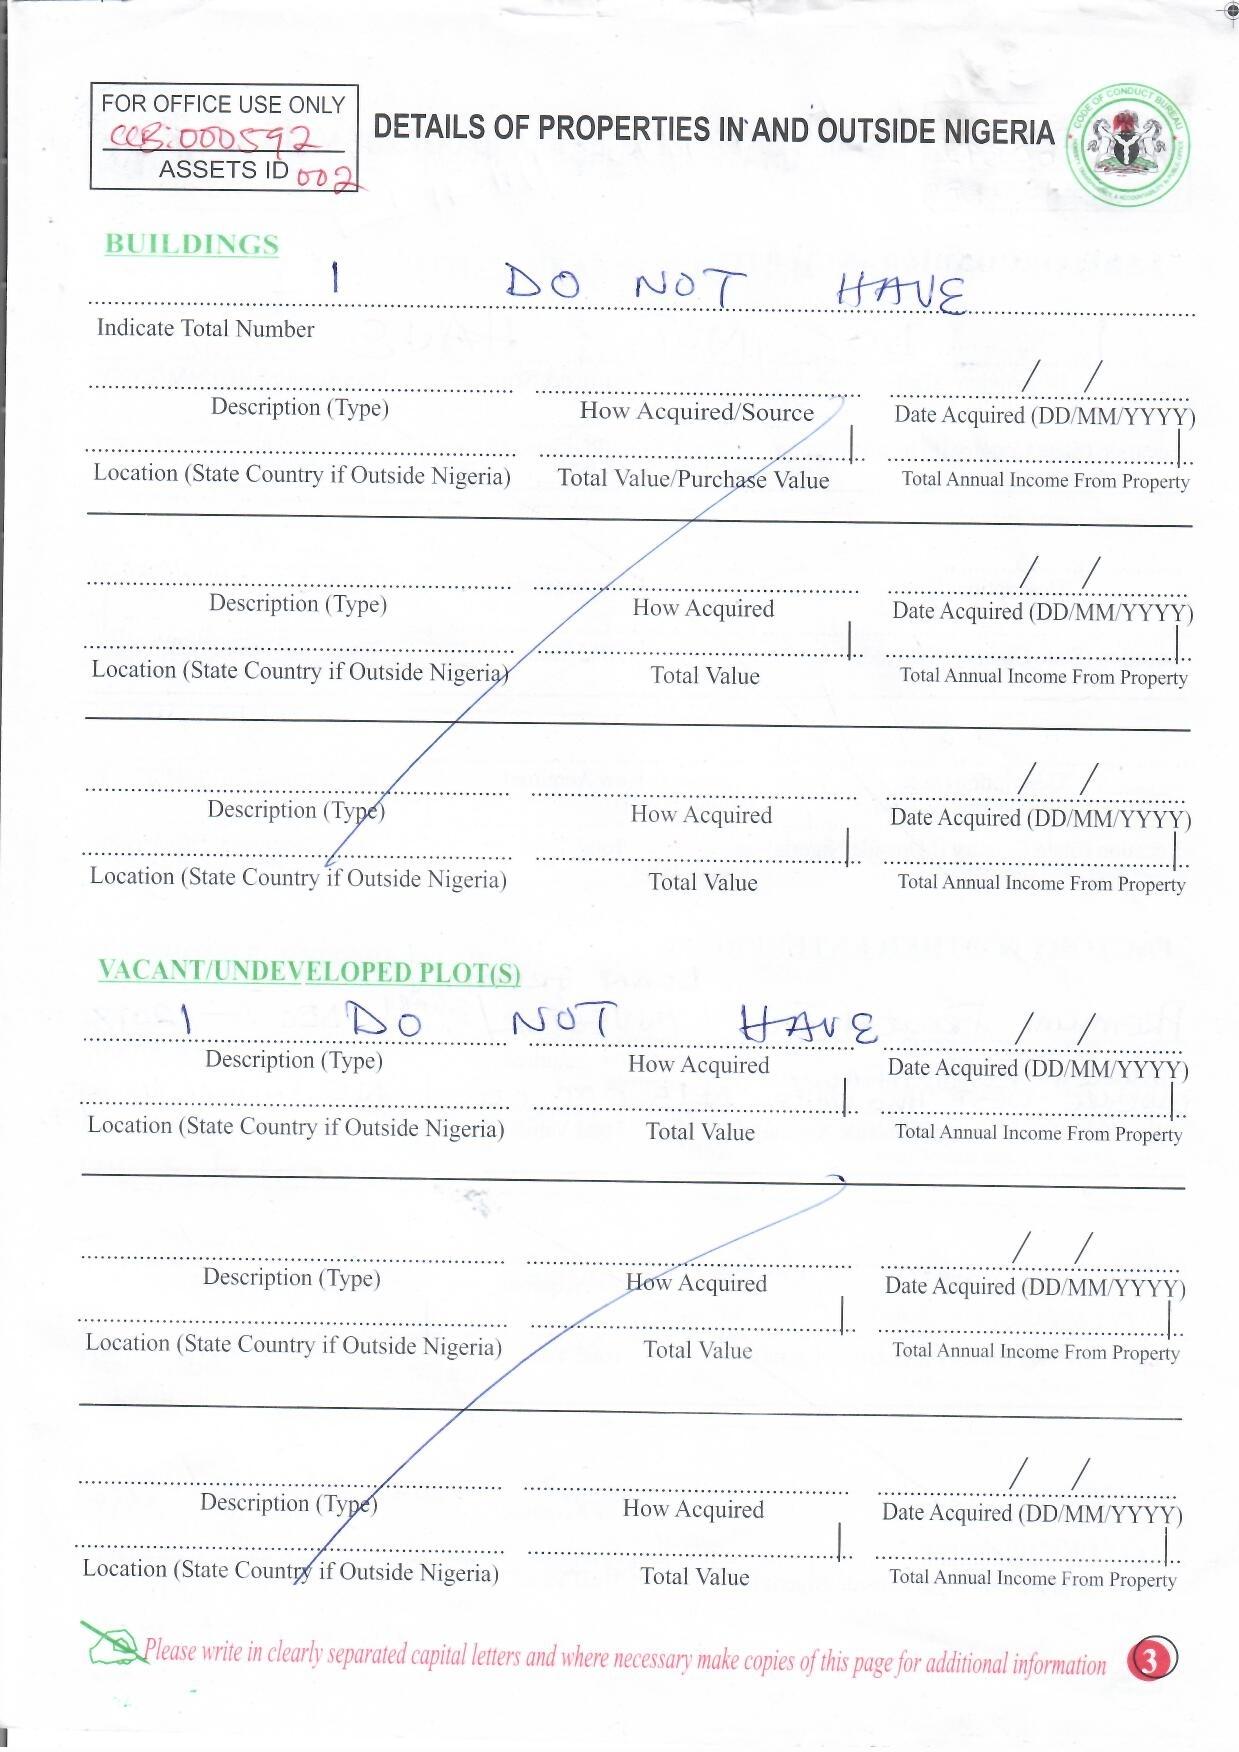 FOR OFFICE USE ONLY
CCB:000592
ASSETS ID 002
DETAILS OF PROPERTIES IN AND OUTSIDE NIGERIA
CODE OF CONDUCT BUREAU
BUILDINGS
I DO NOT HAVE
Indicate Total Number
/ /
Description (Type) How Acquired/Source Date Acquired (DD/MM/YYYY)
Location (State Country if Outside Nigeria) Total Value/Purchase Value Total Annual Income From Property
/ /
Description (Type) How Acquired Date Acquired (DD/MM/YYYY)
Location (State Country if Outside Nigeria) Total Value Total Annual Income From Property
/ /
Description (Type) How Acquired Date Acquired (DD/MM/YYYY)
Location (State Country if Outside Nigeria) Total Value Total Annual Income From Property
VACANT/UNDEVELOPED PLOT(S)
I DO NOT HAVE / /
Description (Type) How Acquired Date Acquired (DD/MM/YYYY)
Location (State Country if Outside Nigeria) Total Value Total Annual Income From Property
/ /
Description (Type) How Acquired Date Acquired (DD/MM/YYYY)
Location (State Country if Outside Nigeria) Total Value Total Annual Income From Property
/ /
Description (Type) How Acquired Date Acquired (DD/MM/YYYY)
Location (State Country if Outside Nigeria) Total Value Total Annual Income From Property
Please write in clearly separated capital letters and where necessary make copies of this page for additional information 3